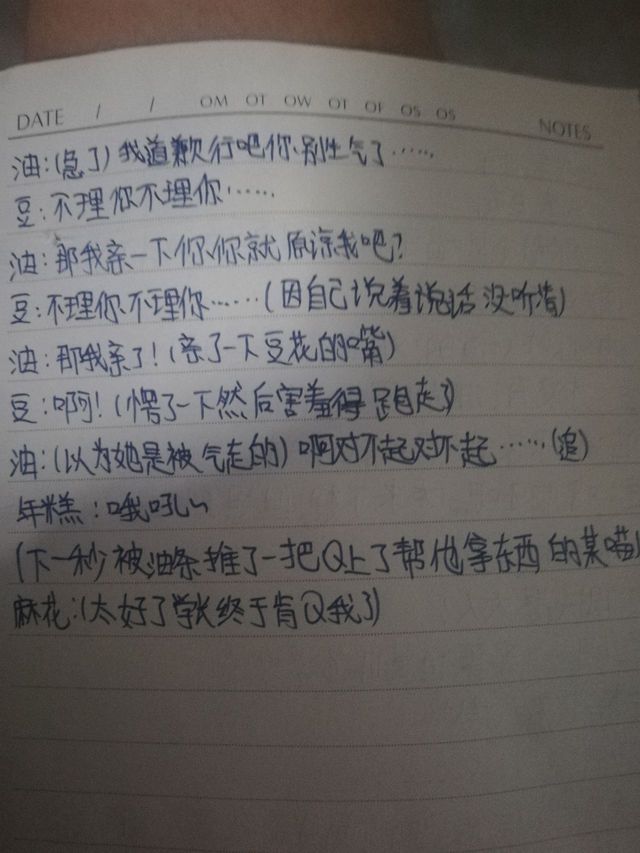 DATE / / OM OT OW OT OF OS OS NOTES
油:(急了)我道歉行吧你别生气了……
豆:不理你不理你……
油:那我亲一下你你就原谅我吧?
豆:不理你不理你……(因自己说着说话没听清)
油:那我亲了!(亲了一下豆花的嘴)
豆:啊!(愣了一下然后害羞得跑走了)
油:(以为她是被气走的)啊对不起对不起……(追)
年糕:哦吼~
(下一秒被油条推了一把Q上了帮他拿东西的某喵)
麻花:(太好了学长终于肯Q我了)